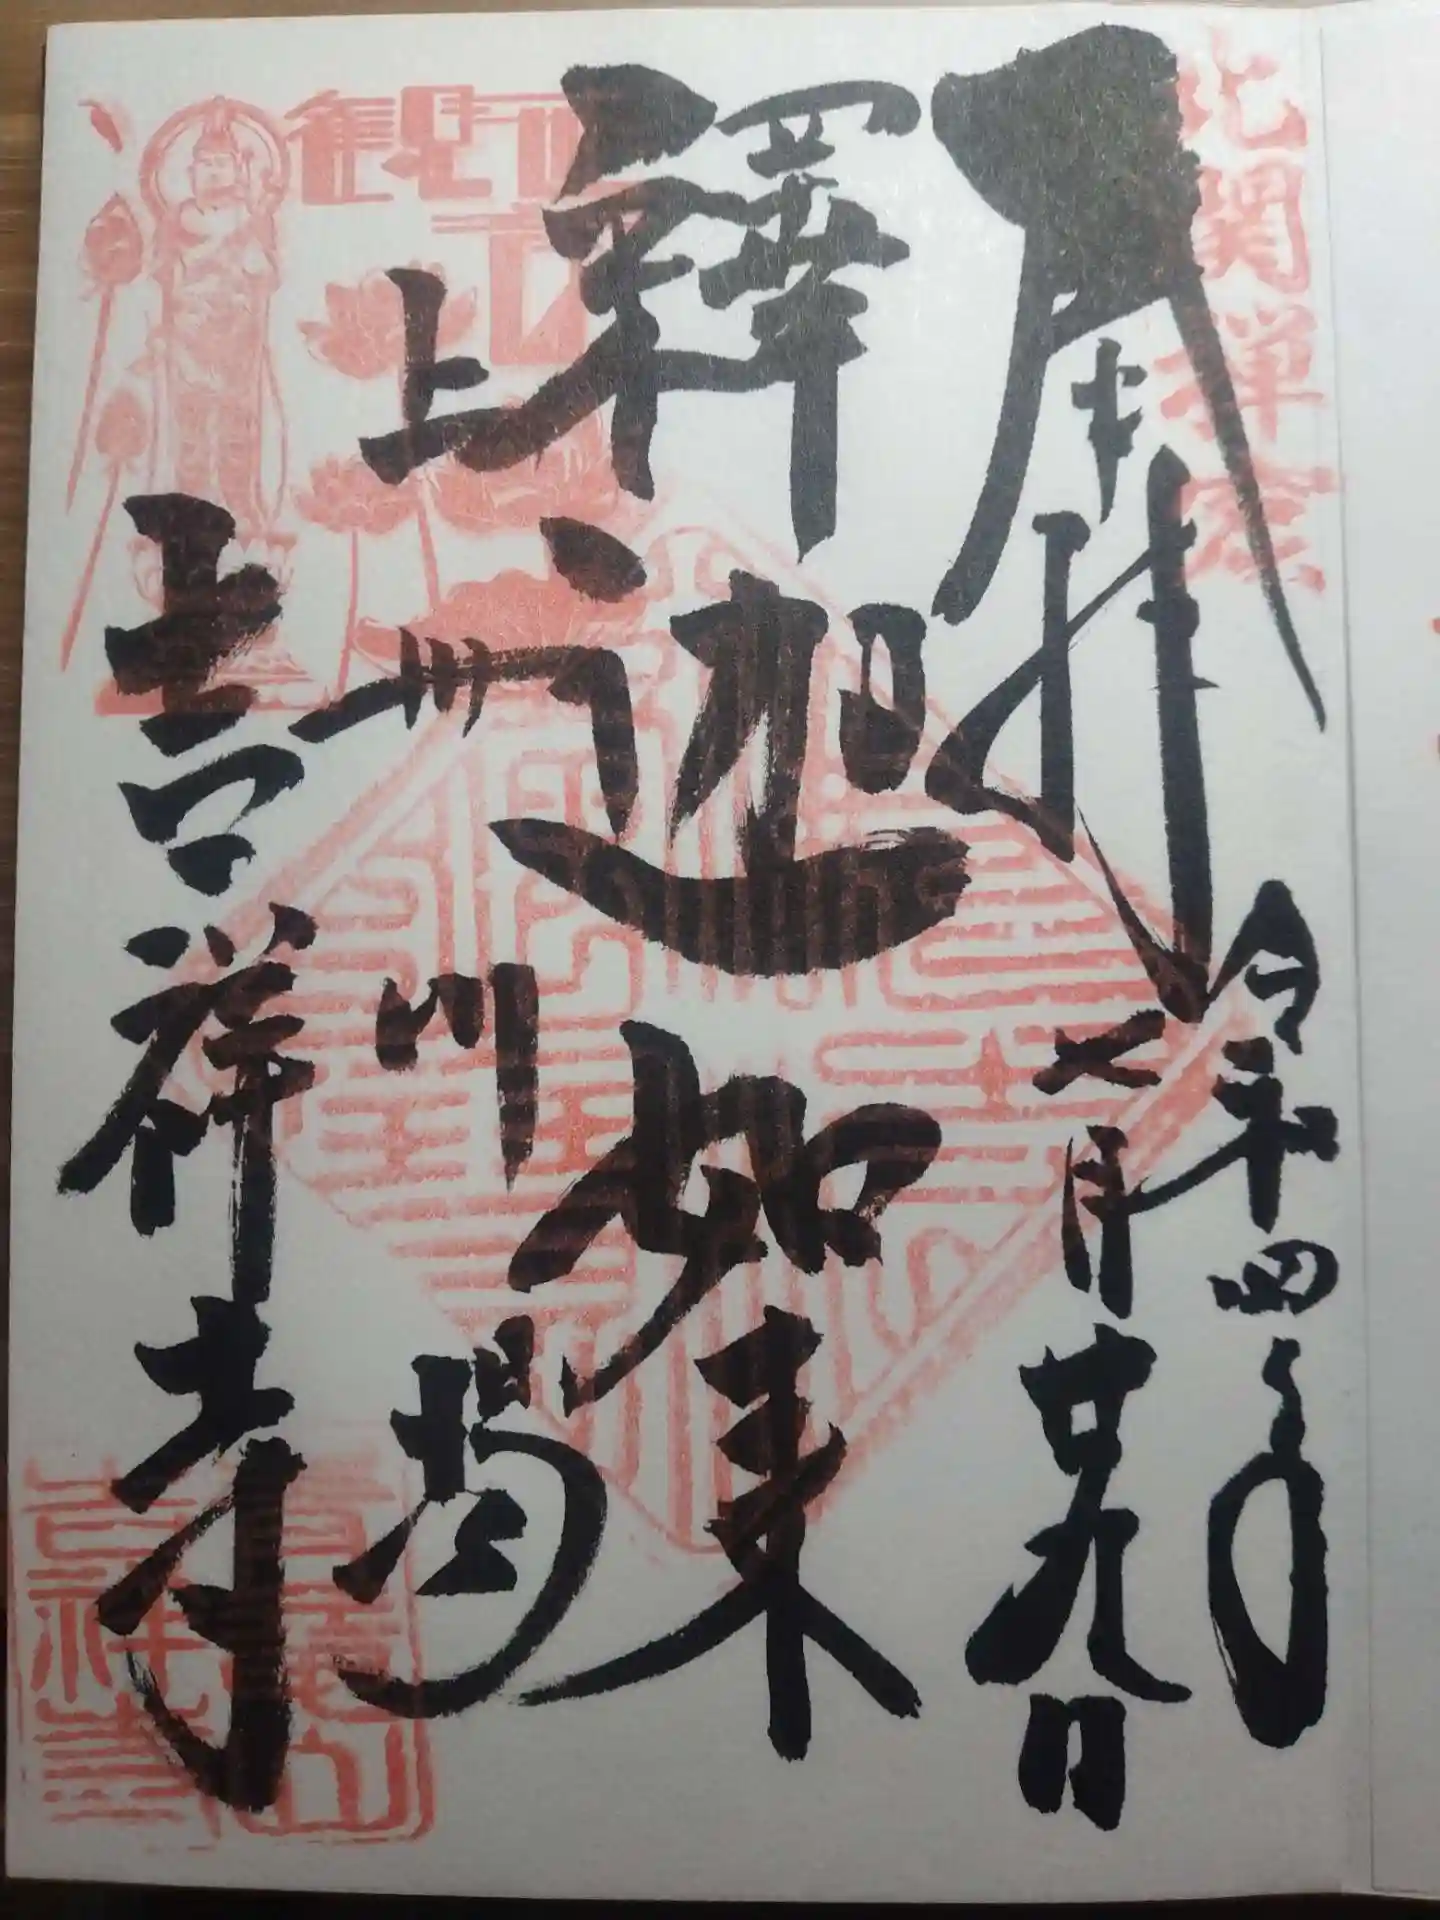 北関
奉拝
令和四年
七月廿九日
釋迦如来
上州川場
吉祥寺
青龍山
吉祥寺